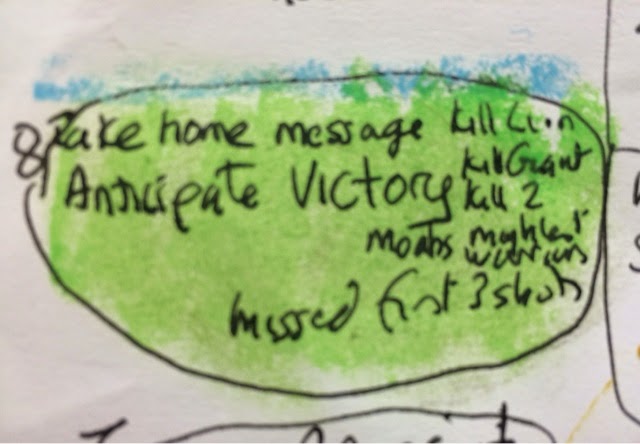 8
Take home message kill Lion
Anticipate Victory kill Giant
kill 2
Moabs mightiest
warriors
missed first 3 shots